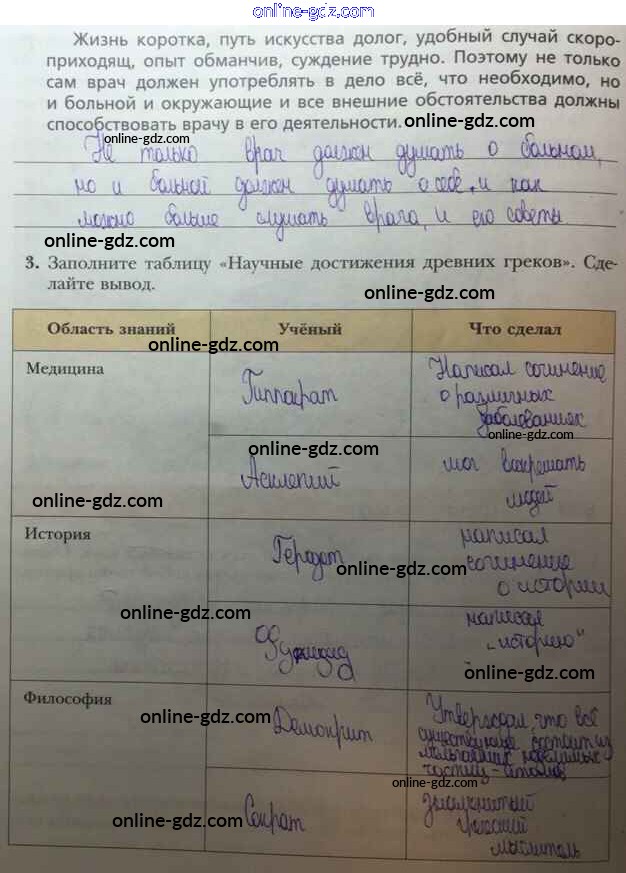 online-gdz.com
Жизнь коротка, путь искусства долог, удобный случай скоро-
приходящ, опыт обманчив, суждение трудно. Поэтому не только
сам врач должен употреблять в дело всё, что необходимо, но
и больной и окружающие и все внешние обстоятельства должны
способствовать врачу в его деятельности.
online-gdz.com
Не только врач должен думать о больном,
но и больной должен думать о себе, и как
можно больше слушать врача, и его советы
online-gdz.com
3. Заполните таблицу «Научные достижения древних греков». Сде-
лайте вывод.
online-gdz.com
Область знаний Учёный Что сделал
online-gdz.com
Медицина
Гиппократ
Написал сочинение
о различных
заболеваниях
online-gdz.com
online-gdz.com
Асклепий
мог воскрешать
людей
online-gdz.com
История
Геродот
написал
сочинение
о истории
online-gdz.com
online-gdz.com
Фукидид
написал
„историю“
online-gdz.com
Философия
online-gdz.com
Демокрит
Утверждал, что всё
существующее состоит из
мельчайших неделимых
частиц - атомов
online-gdz.com
online-gdz.com
Сократ
знаменитый
греческий
мыслитель